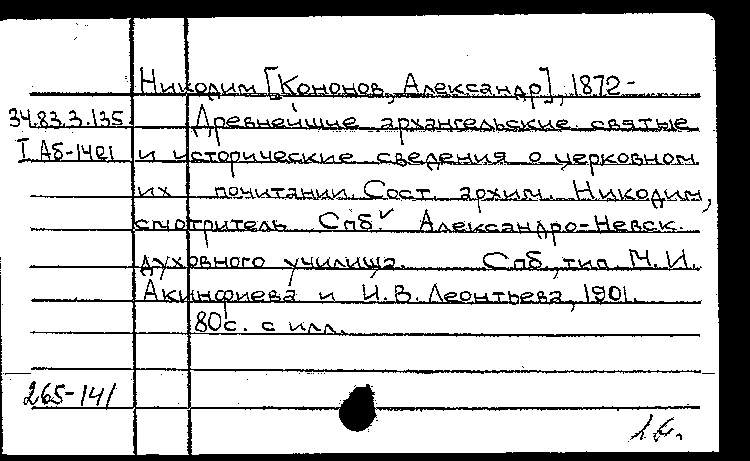 Никодим [Кононов, Александр], 1872-
34.83.3.135. Древнейшие архангельские святые
и исторические сведения о церковном
их почитании. Сост. архим. Никодим,
смотритель Спб. Александро-Невск.
духовного училища. Спб., тип. М. И.
Акинфиева и И. В. Леонтьева, 1901.
80с. с илл.
265-141